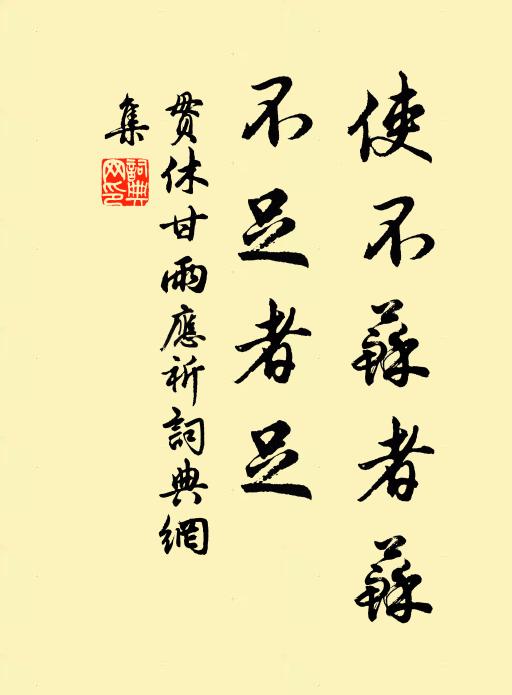 使不蘇者蘇
不足者足
貫休甘雨應祈詞典網
集
詞典
网印